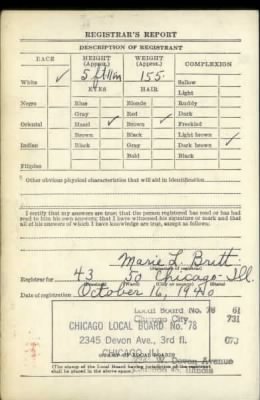 REGISTRAR'S REPORT
DESCRIPTION OF REGISTRANT
RACE
HEIGHT
(Approx.)
WEIGHT
(Approx.)
COMPLEXION
White ✓
5 ft 11 in
155
Sallow
EYES
HAIR
Light
Negro
Blue
Blonde
Ruddy
Gray
Red
Dark
Oriental
Hazel ✓
Brown ✓
Freckled
Brown
Black
Light brown
Indian
Black
Gray
Dark brown ✓
Bald
Black
Filipino
Other obvious physical characteristic that will aid in identification
I certify that my answers are true; that the person registered has read or has had
read to him his own answers; that I have witnessed his signature or mark and that
all of his answers of which I have knowledge are true, except as follows:
Marie L. Britt
(Signature of registrar)
Registrar for 43 50 Chicago Ill.
Date of registration October 16, 1940
Local Board No. 78 61
Chicago City 731
CHICAGO LOCAL BOARD No. 78
2345 Devon Ave., 3rd fl.
CHICAGO, ILL.
Devon Avenue
(The stamp of the Local Board having jurisdiction of the registrant
shall be placed in the above space.)